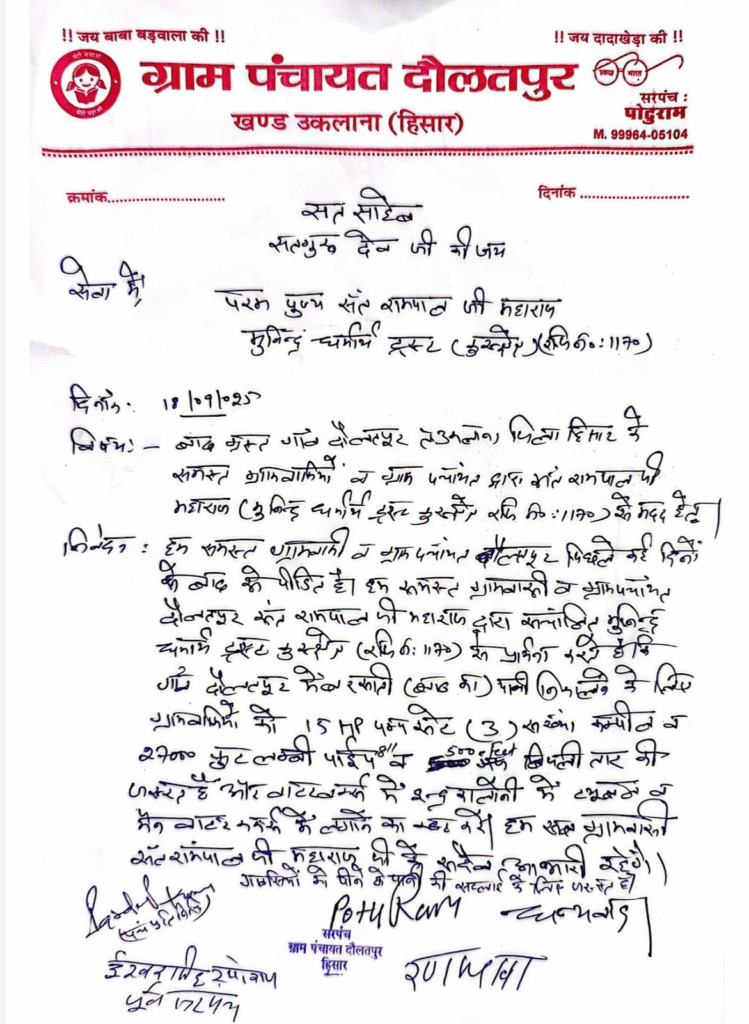 !! जय बाबा बड़वाला की !!
!! जय दादाखेड़ा की !!
ग्राम पंचायत दौलतपुर
खण्ड उकलाना (हिसार)
स्वच्छ भारत
सरपंच :
पोटुराम
M. 99964-05104
क्रमांक
दिनांक
सत साहेब
सतगुरू देव जी की जय
सेवा में,
परम पुज्य संत रामपाल जी महाराज
मुनिन्द्र धर्मार्थ ट्रस्ट (कुरुक्षेत्र) (रजि नं०:1170)
दिनांक. 18/09/025
विषय: - बाढ ग्रस्त गांव दौलतपुर त. उकलाना जिला हिसार के
समस्त ग्रामवासियों व ग्राम पंचायत द्वारा संत रामपाल जी
महाराज (मुनिन्द्र धर्मार्थ ट्रस्ट कुरुक्षेत्र रजि नं०:1170) से मदद हेतू।
निवेदन : हम समस्त ग्रामवासी व ग्राम पंचायत दौलतपुर पिछले कई दिनों
से बाढ से पीडित है। हम समस्त ग्रामवासी व ग्राम पंचायत
दौलतपुर संत रामपाल जी महाराज द्वारा संचालित मुनिन्द्र
धर्मार्थ ट्रस्ट कुरुक्षेत्र (रजि नं: 1170) से प्रार्थना करते है कि
गांव दौलतपुर में (बाढ का) पानी निकालने के लिए
ग्रामवासियों को 15 HP पम्प सेट (3) व
27000 फुट लम्बी पाईप 8" व 500 feet बिजली तार की
जरूरत है और में में व
मैन वाटर में लगाने का करें। हम सब ग्रामवासी
संत रामपाल जी महाराज जी के सदैव आभारी रहेंगे।
को पीने के पानी की सप्लाई के लिए जरूरत है।
Potu Ram
धन्यवाद
सरपंच
ग्राम पंचायत दौलतपुर
हिसार
पूर्व सरपंच